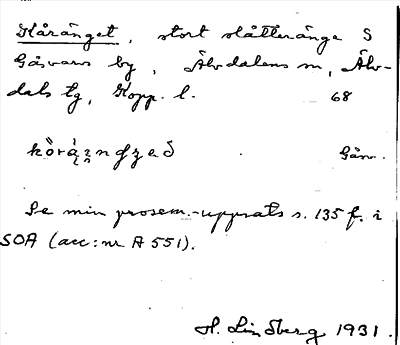 Kåränget, stort slåtteränge S
Gåsvarv by, Älvdalens sn, Älv-
dals tg, Kopp. l. 68
Gåsv.
Se min prosem.-uppsats s. 135 f. i
SOA (acc: nr A 551).
H. Lindberg 1931.